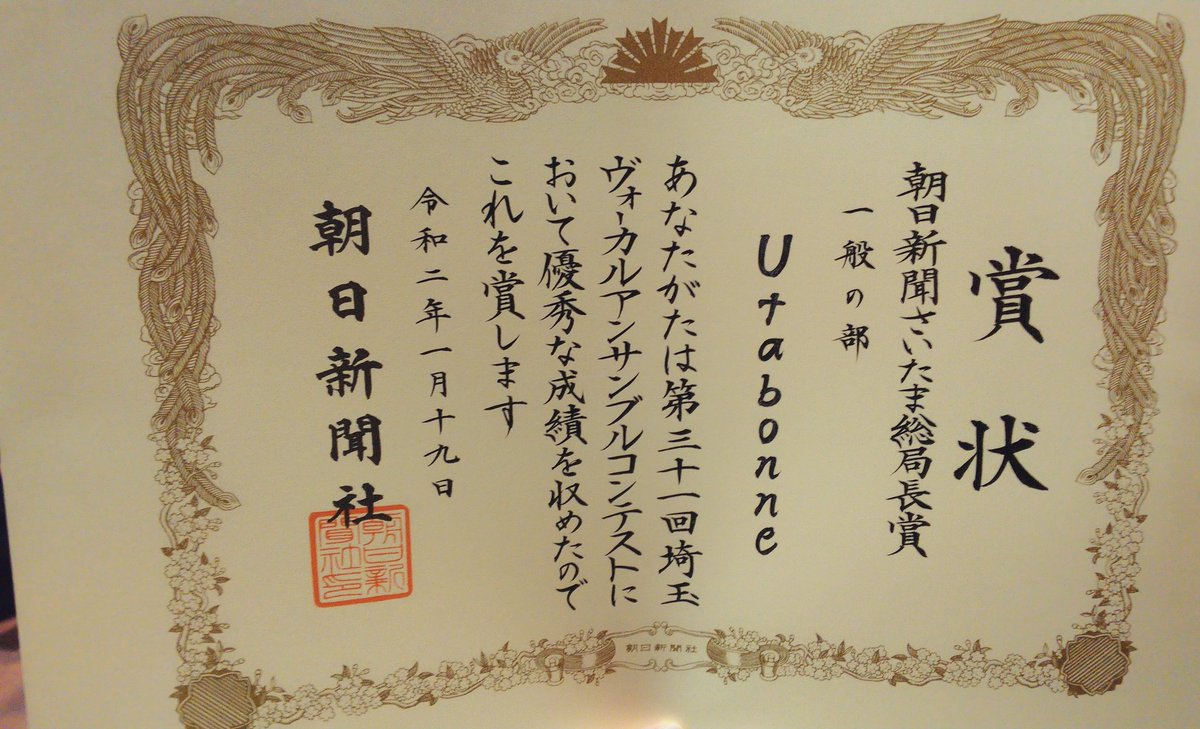 賞状
朝日新聞さいたま総局長賞
一般の部
Utabonne
あなたがたは第三十一回埼玉
ヴォーカルアンサンブルコンテストに
おいて優秀な成績を収めたので
これを賞します
令和二年一月十九日
朝日新聞社
朝日新聞社